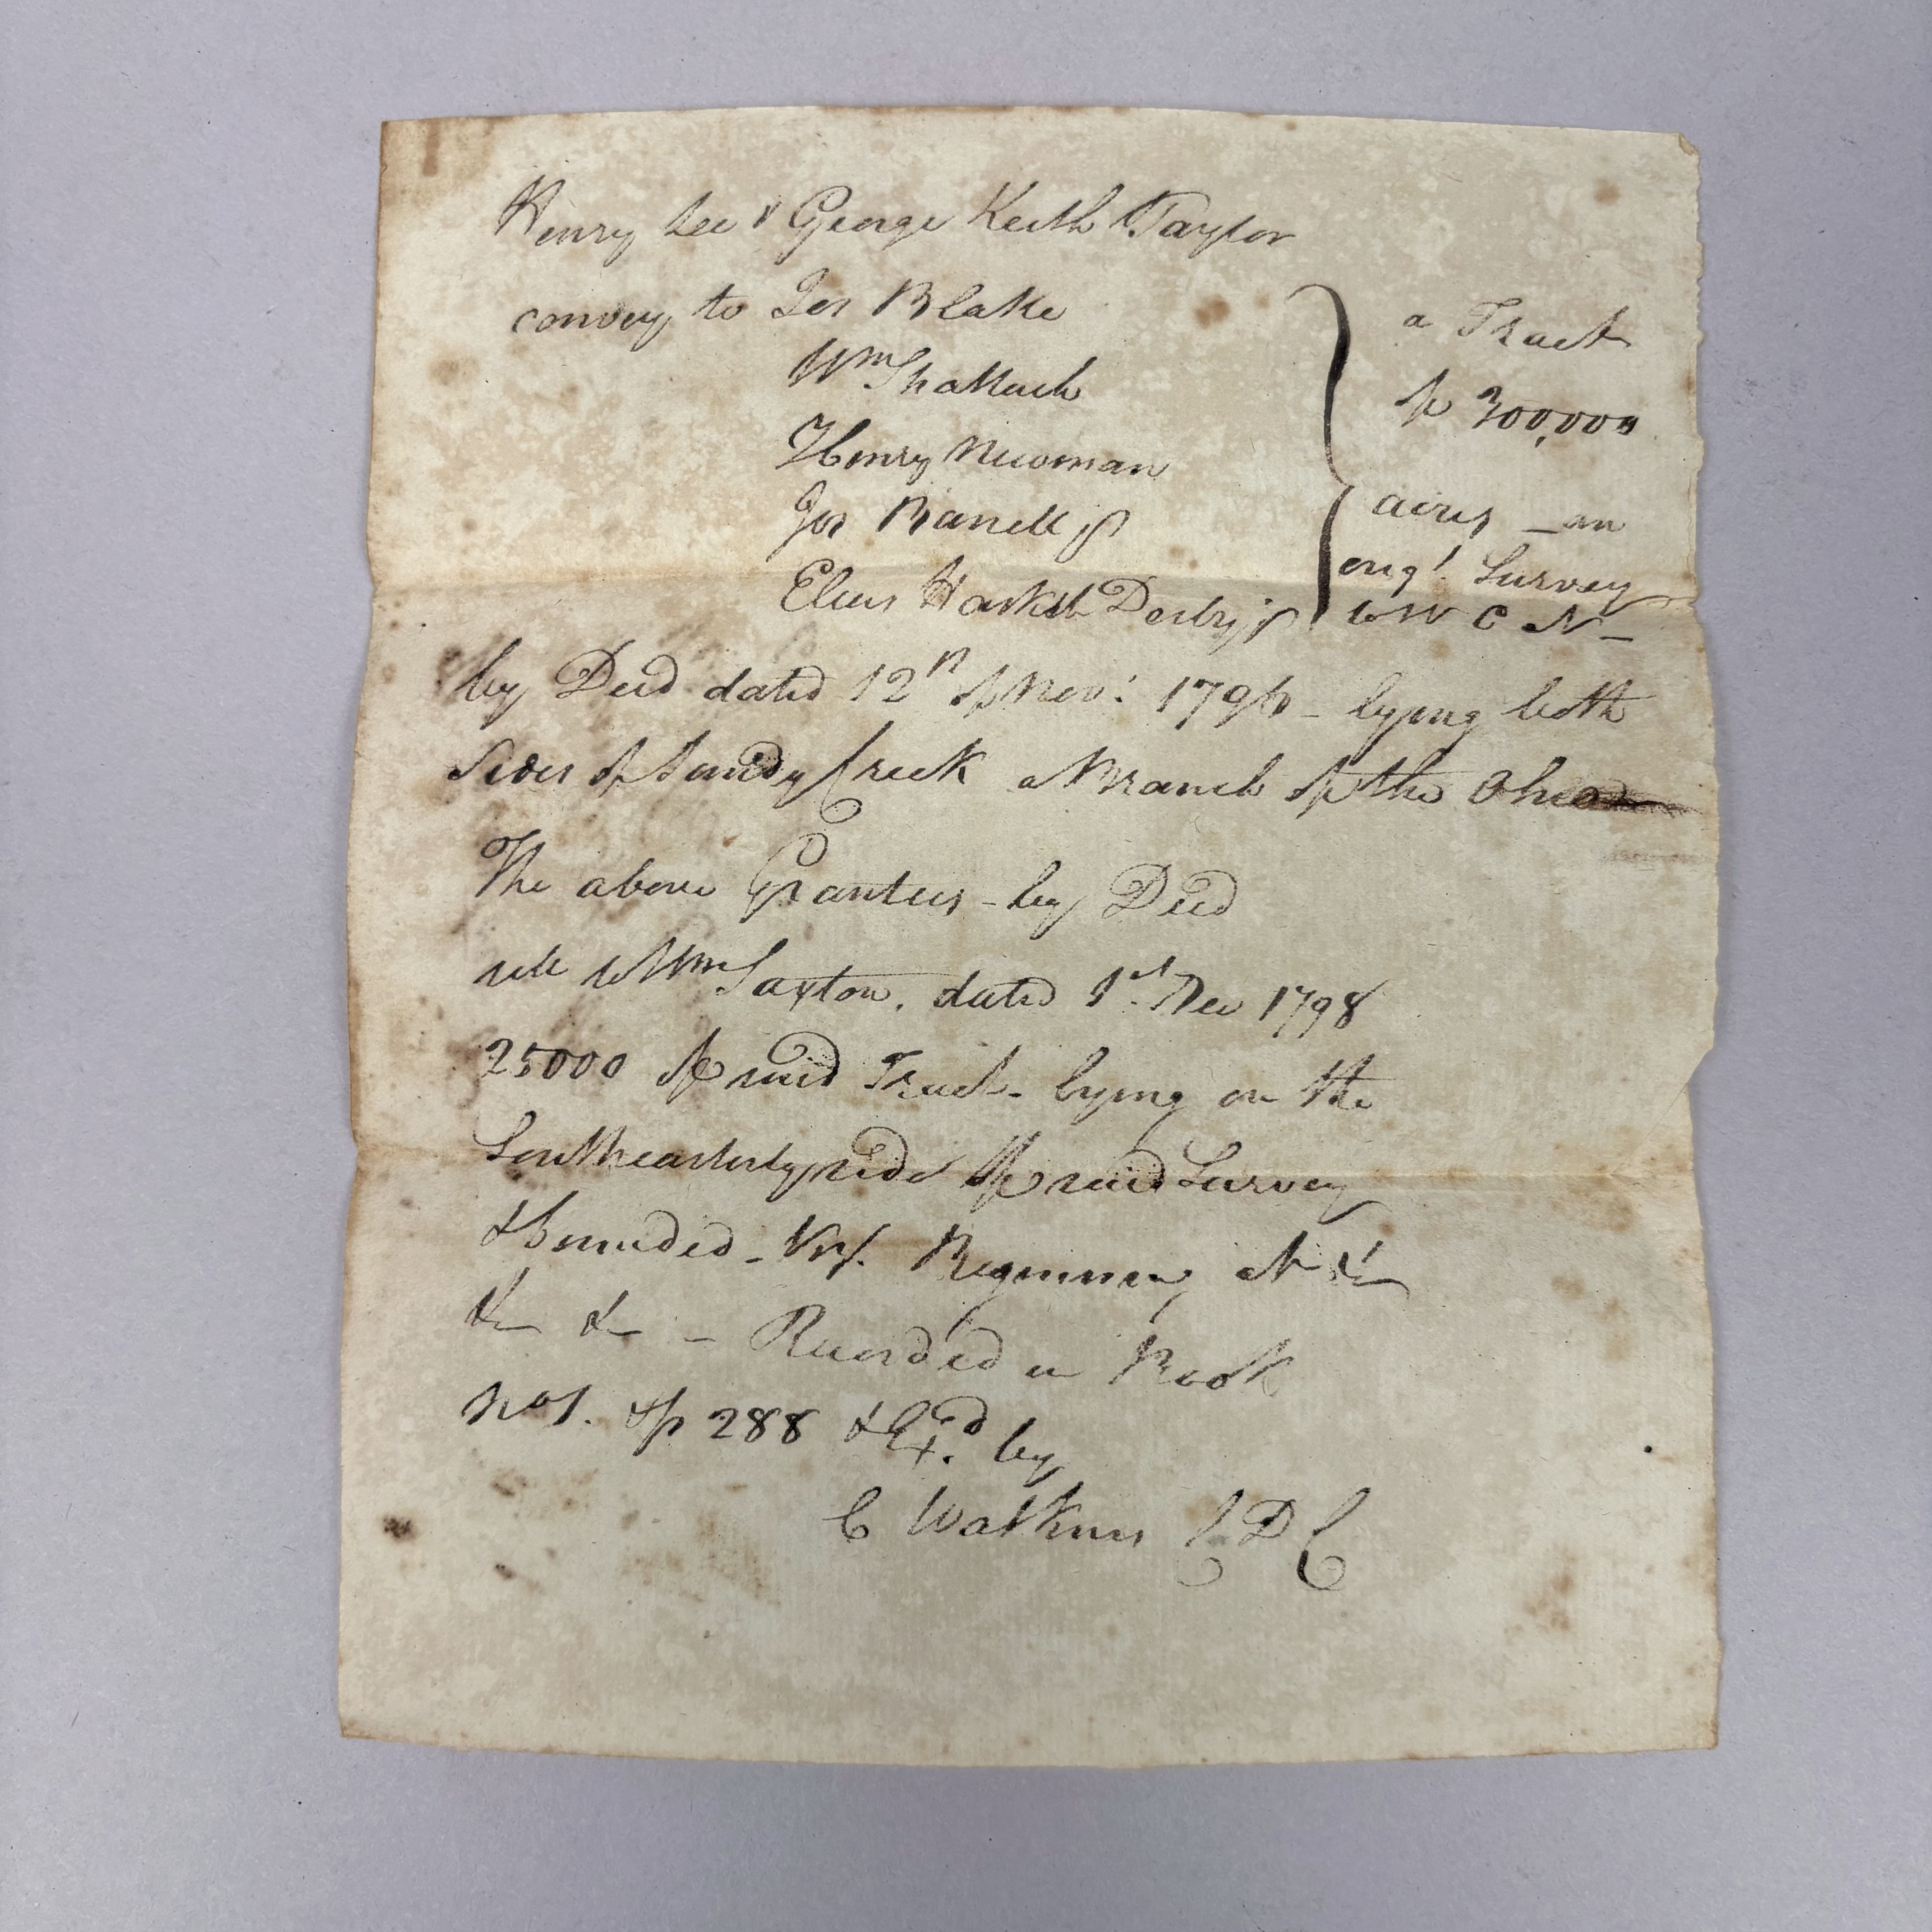 Henry Lee & George Keith Taylor
convey to Jos Blake
Wm Shattuck
Henry Newman
Jos Barrell jr
Elias Hasket Derby jr
a Tract
of 300,000
acres _ an
orig'l Survey
to W C N _
by Deed dated 12th of Nov: 1796 _ lying both
sides of Sandy Creek a Branch of the Ohio
The above Grantees _ by Deed
sell to Wm Saxton. dated 1st. Dec 1798
25000 of said Tract _ lying on the
Southeasterly side of said Survey
& bounded _ Viz. Beginning at &c
&c &c _ Recorded in Book
No 1. of p 288 & Ex.d by
C Watkins C D C